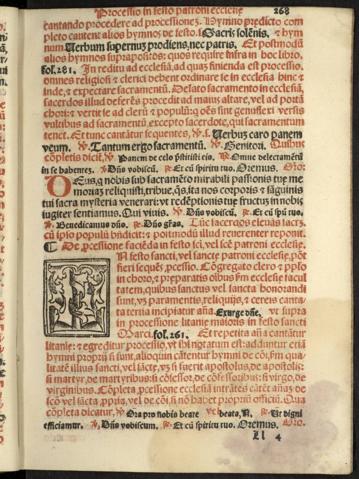 Processio in festo patroni ecclesie 268
cantando procedere ad processiones. Hymno predicto com
pleto cantent alios hymnos de festo. s. Sacris solēnis, & hym
num Verbum supernus prodiens, nec patris. Et postmodū
alios hymnos suprapositos: quos require infra in hoc libro,
fol. 281. In reditu ad ecclesiā, ad quā finienda est processio,
omnes religiosi & clerici debent ordinare se in ecclesia hinc &
inde, & expectare sacramentū. Delato sacramento in ecclesiā,
sacerdos illud deferēs procedit ad maius altare, vel ad portā
chori: & vertit se ad clerū & populū: q oēs sint genuflexi versis
vultibus ad sacramentū: excepto sacerdote, qui sacramentum
tenet. Et tunc cantātur sequentes, ℣. s. Verbum caro panem
verum. ℣. Tantum ergo sacramentū. ℣. Genitori. Quibus
cōpletis dicit, ℣. Panem de celo prestitisti eis. ℟. Omne delectamētū
in se habentem. ℣. Dñs vobiscū. ℟. Et cū spū tuo. Oremus. Oro.
DEus, q nobis sub sacramēto mirabili passionis tue me
moriā reliquisti, tribue, qs, ita nos corporis & sāguinis
tui sacra mysteria venerari: vt redēptionis tue fructū in nobis
iugiter sentiamus. Qui viuis. ℣. Dñs vobiscū. ℟. Et cū spū tuo.
℣. Benedicamus dño. ℟. Deo grās. Tūc sacerdos eleuās sacrm,
cū ipso populū bn̄dicit: & postmodū illud reuerenter reponit.
¶ De processione faciēda in festo scī, vel scē patroni ecclesie.
IN festo sancti, vel sancte patroni ecclesie, pōt
fieri sequēs processio. Cōgregato clero & pplo
in choro, & preparatis oībus sm̄ ecclesie facul
tatem, quibus sanctus vel sancta honorandi
sunt, vz paramentis, reliquijs, & cereis canta
tur antiphona incipiatur aña. Exurge dñe. vt supra
in processione litanie maioris in festo sancti
Marci. fol. 261. Et repetita añā cantātur
litanie: & egreditur processio, vt ibi notatum est: adduntur etiā
hymni proprij si sunt, alioquin cātentur hymni de cōi, sm̄ qua
litatē illius sancti, vel scte, vz si fuerit apostolus, de apostolis:
si martyr, de martyribus: si cōfessor, de cōfessoribus: si virgo, de
virginibus. Cōpleta processione ecclesiā intrātes cātēt añas de
scō vel scta, pprias, vel de cōi, si nō habet propriū officiū. Qua
cōpleta dicatur, ℣. Ora pro nobis beate vel beata, N. ℟. Vt digni
efficiamur. ℣. Dñs vobiscum. ℟. Et cū spiritu tuo. Oremus. Oro.
Ll 4